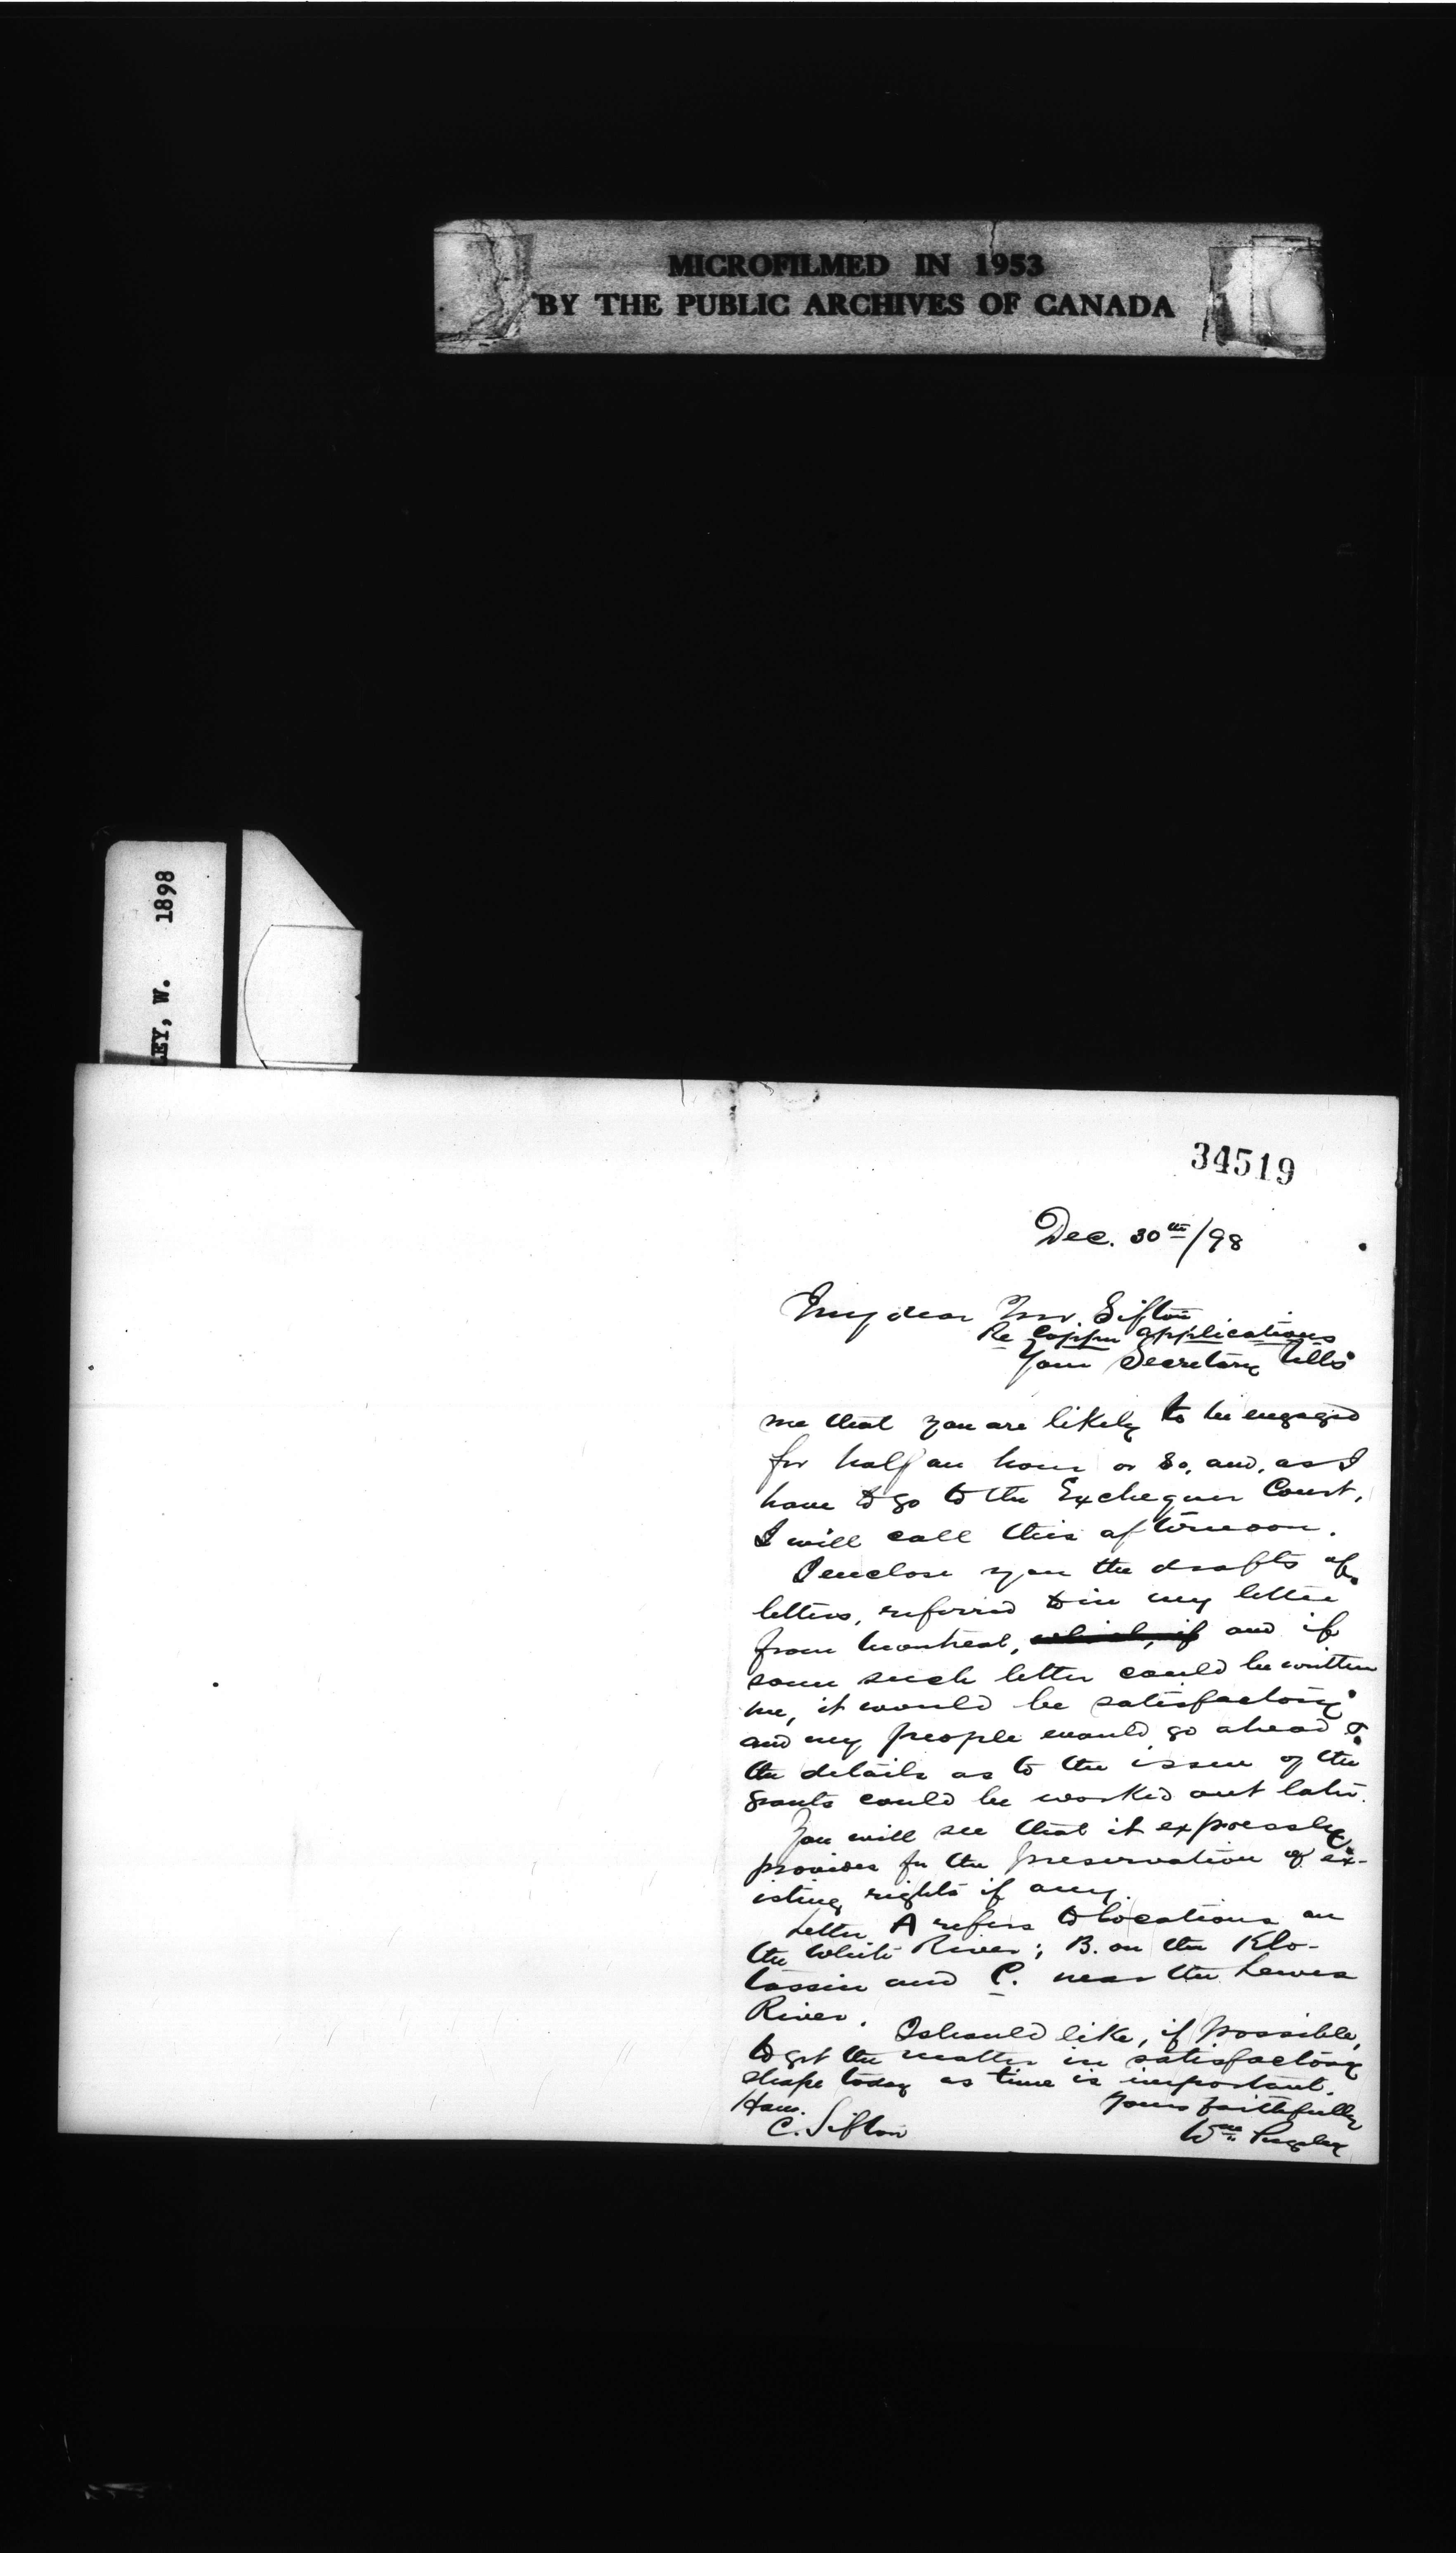 MICROFILMED IN 1953
BY THE PUBLIC ARCHIVES OF CANADA
LEY, W. 1898
34519
Dec. 30th/98
My dear Mr. Sifton
Re Copper applications
Your Secretary tells
me that you are likely to be engaged
for half an hour or so, and, as I
have to go to the Exchequer Court,
I will call this afternoon.
I enclose you the drafts of
letters, referred to in my letter
from Montreal, which, if and if
some such letter could be written
me, it would be satisfactory
and my people would go ahead &
the details as to the issue of the
grants could be worked out later.
You will see that it expressly
provides for the preservation of ex-
isting rights if any.
Letter A refers to locations on
the White River; B. on the Klo-
tassin and C. near the Lewes
River. I should like, if possible,
to get the matter in satisfactory
shape today as time is important.
Hon. Yours faithfully
C. Sifton Wm Pugsley